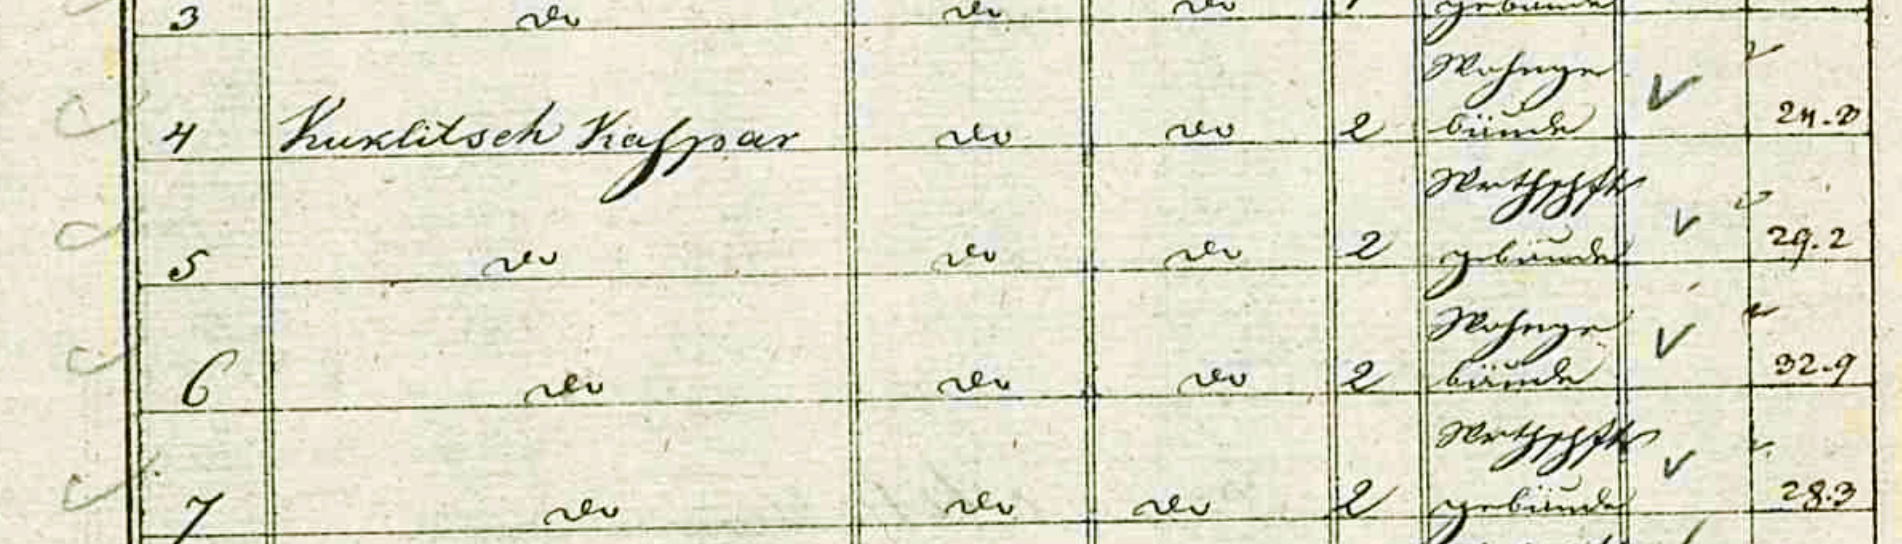 3 do do do gebäude
Wohnge
4 Kuklitsch Kaspar do do 2 bäude
Wrthschft
5 do do do 2 gebäude 29.2
Wohnge
6 do do do 2 bäude 32.9
Wrthschft
7 do do do 2 gebäude 28.3